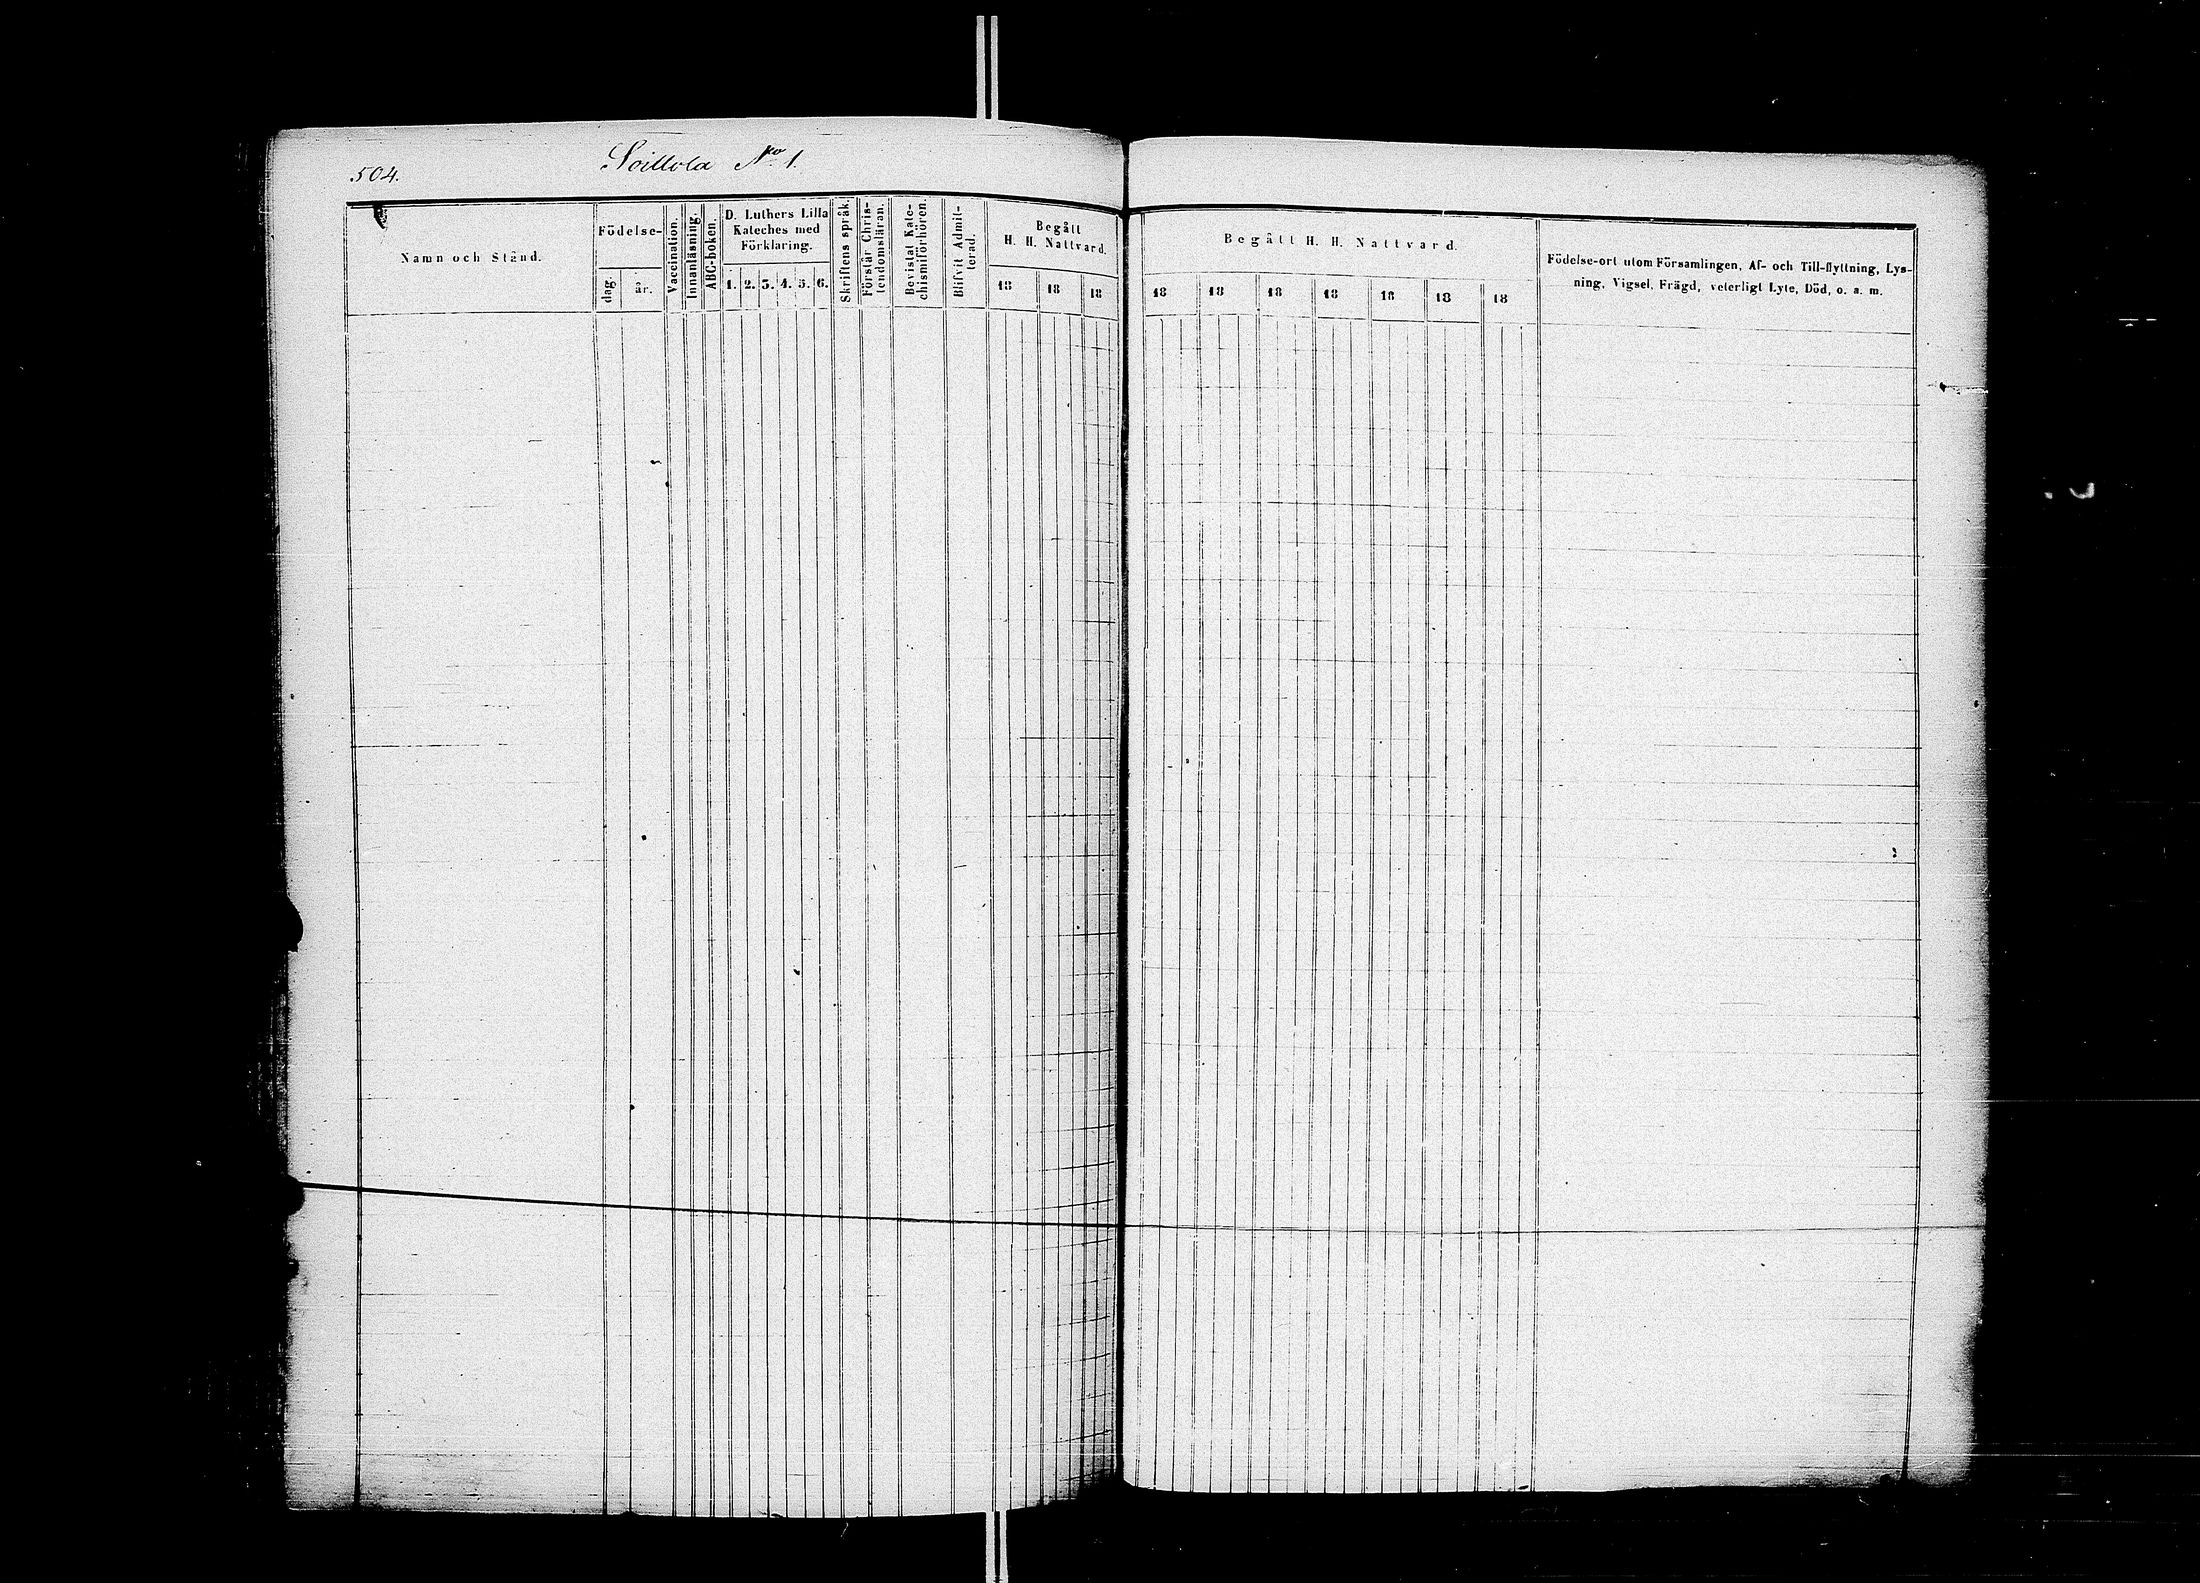 504.
Soillola No 1.
Namn och Stånd.
Födelse-
dag.
år.
Vaccination.
Innanläsning.
ABC-boken.
D. Luthers Lilla
Kateches med
Förklaring.
1. 2. 3. 4. 5. 6.
Skriftens språk.
Förstår Chris-
tendomsläran.
Bevistat Kate-
chismiförhören.
Blifvit Admit-
terad.
Begått
H. H. Nattvard.
18 18 18
Begått H. H. Nattvard.
18 18 18 18 18 18 18
Födelse-ort utom Församlingen, Af- och Till-flyttning, Lys-
ning, Vigsel, Frägd, veterligt Lyte, Död, o. a. m.